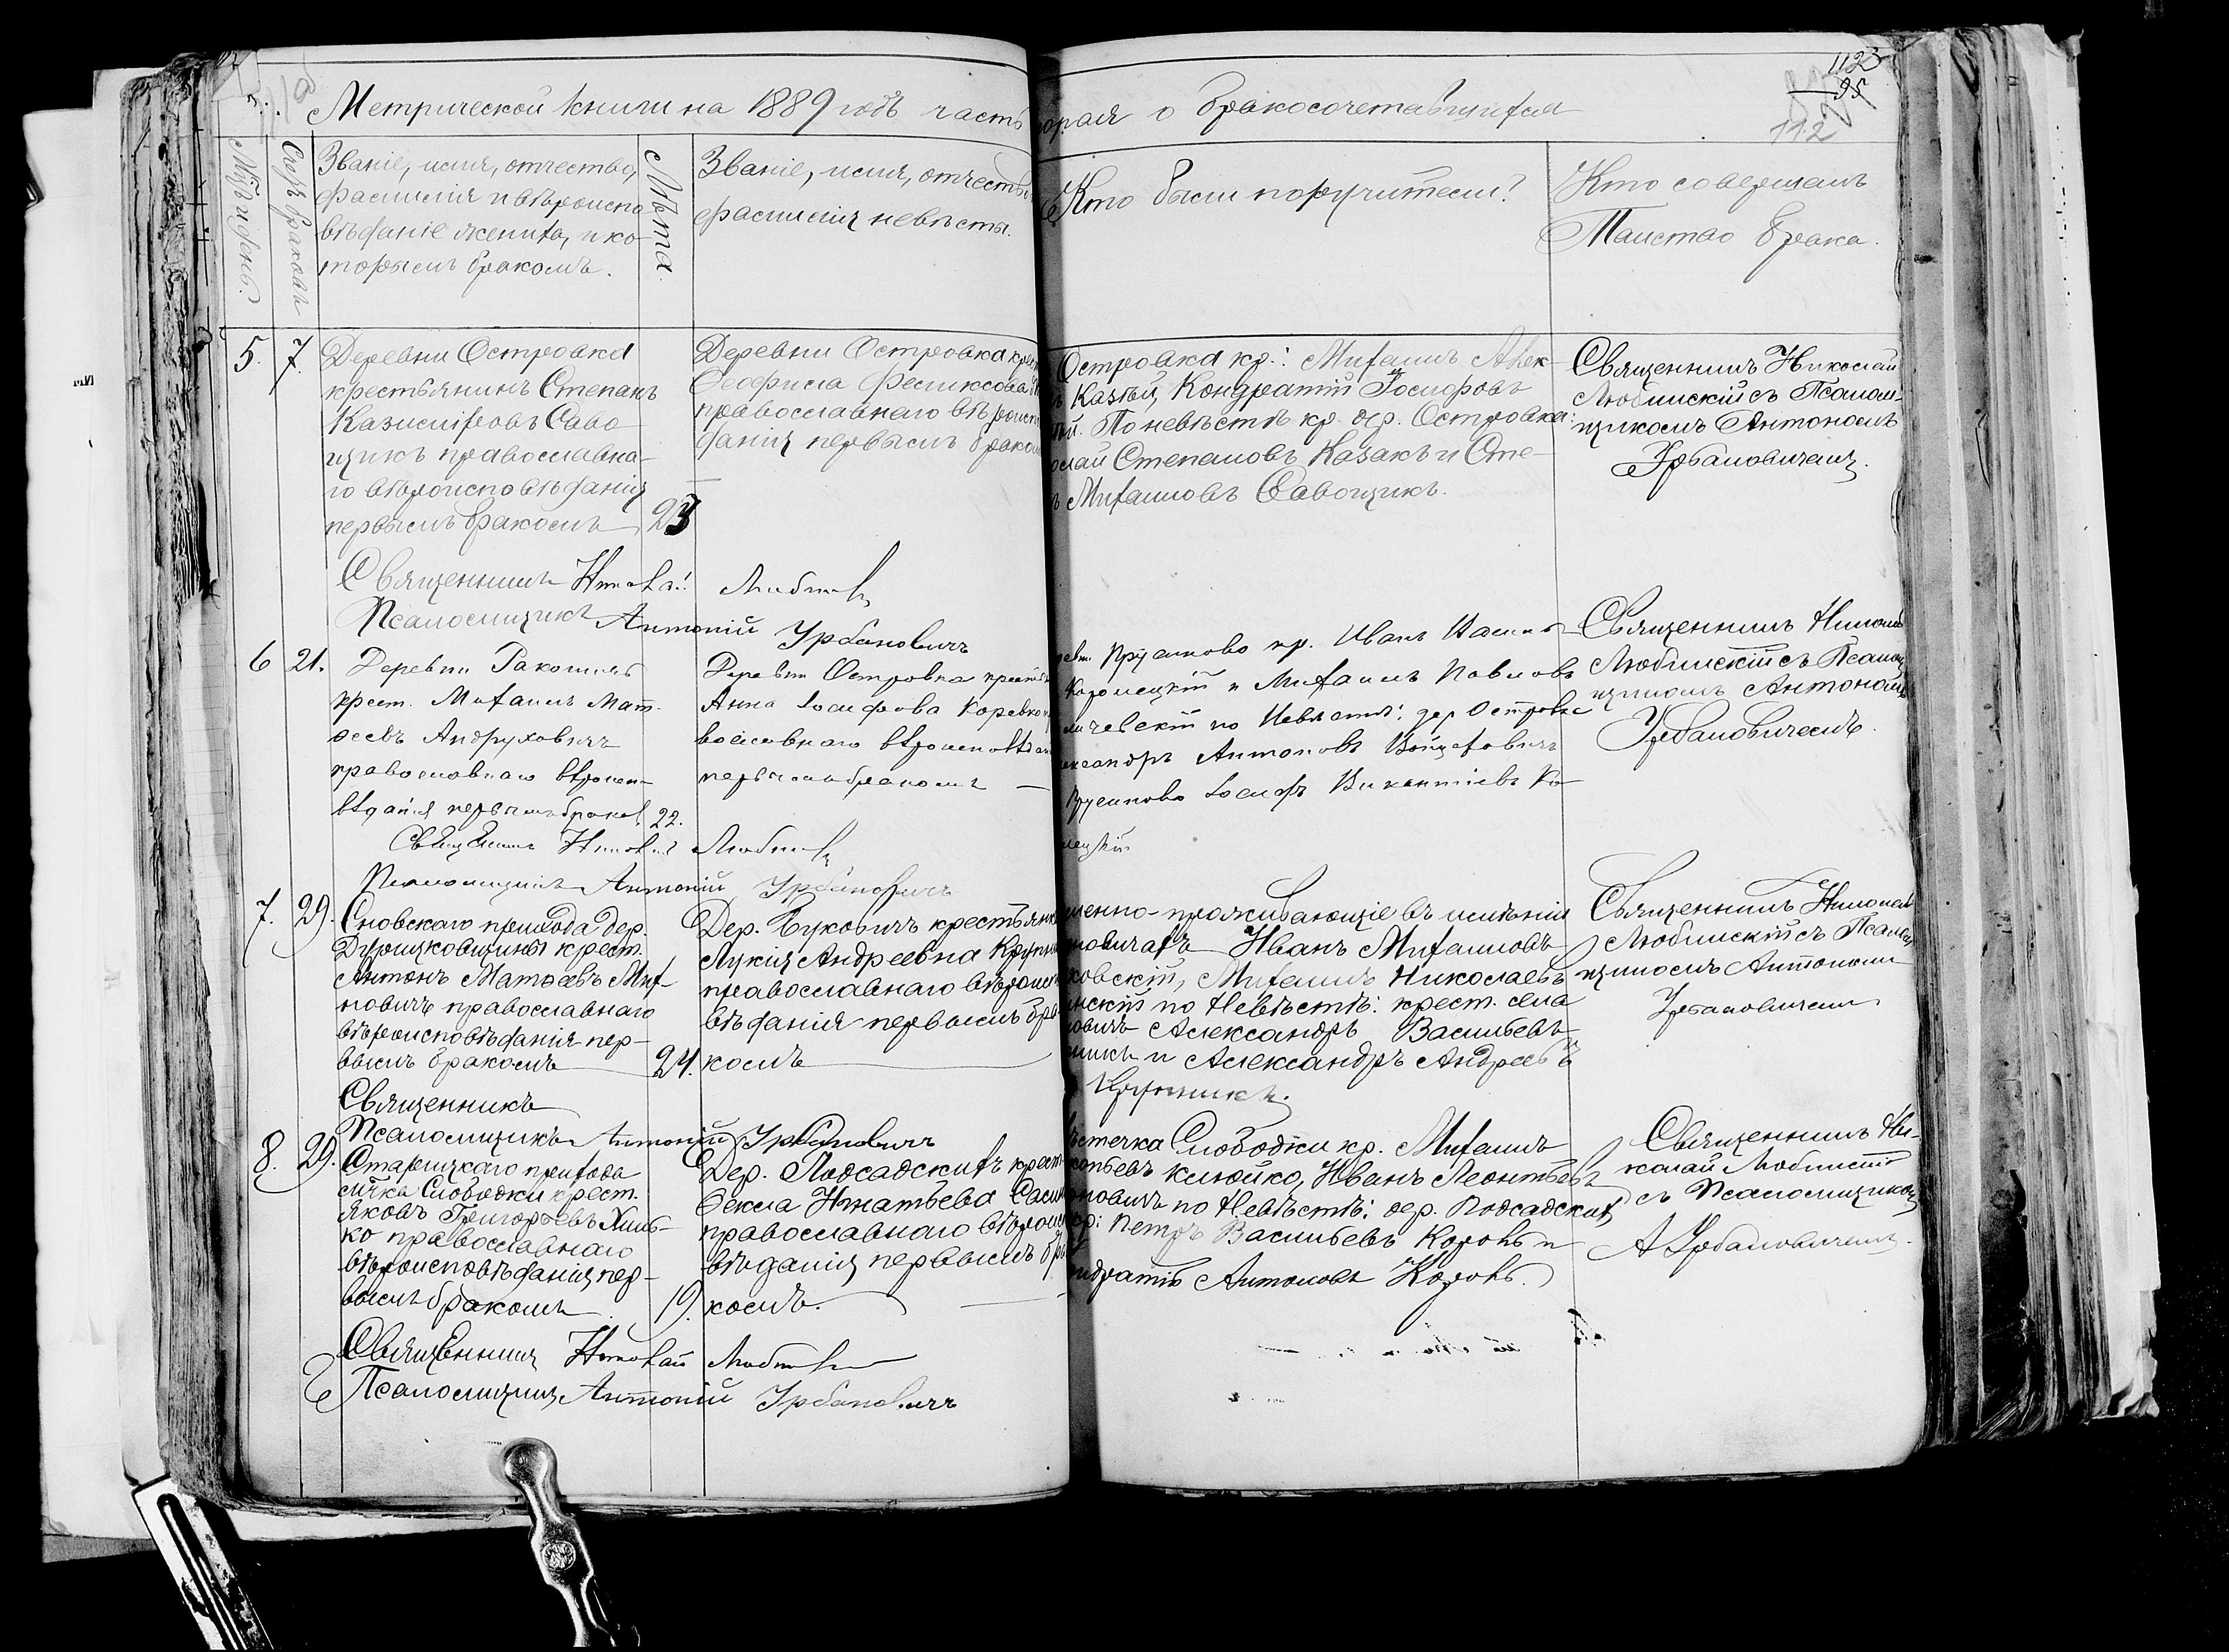 1123
95
112
Метрической книги на 1889 годъ часть
орая о бракосочетавшихся
Мѣсяцъ и день.
Счетъ браковъ
Званіе, имя, отчество,
фамилія и вѣроиспо
вѣданіе жениха, и ко-
торымъ бракомъ.
Лѣта.
Званіе, имя, отчество
фамилія невѣсты.
Кто были поручители?
Кто совершалъ
Таинство брака.
5. 7.
Деревни Островка
крестьянинъ Степанъ
Казиміровъ Саво
щикъ православна-
го вѣроисповѣданія
первымъ бракомъ 23
Деревни Островка крест
Ѳеофила Феликсова
православнаго вѣроиспо
данія первымъ браком
Островка кр.: Михаилъ Алек-
ъ Казакъ, Кондратій Іосифовъ
ій. По невѣстѣ кр. дер. Островка:
олай Степановъ Казакъ и Сте-
ъ Михаиловъ Савощикъ.
Священникъ Николай
Любинскій съ Псалом-
щикомъ Антономъ
Урбановичемъ.
Священникъ Николай Любинск
Псаломщикъ Антоній Урбановичъ
6 21.
Деревни Ракошичъ
крест. Михаилъ Мат-
ѳеевъ Андруховичъ
православнаго вѣроиспо-
вѣданія первымъ браком. 22.
Деревни Островка крестьян
Анна Іосифова Коревко
вославнаго вѣроисповѣдан
первымъ бракомъ —
ревни Прусиново кр. Иванъ Васил
Коронецкій и Михаилъ Павловъ
ичевскій по Невѣстѣ: дер Островка
ександръ Антоновъ Войцеховичъ
Прусиново Іосифъ Викентіевъ Ко-
нецкій
Священникъ Никола
Любинскій съ Псалом
щикомъ Антономъ
Урбановичемъ.
Священникъ Николай Любинск
Псаломщикъ Антоній Урбановичъ
7. 29.
Сновскаго прихода дер.
крест.
Антонъ Матѳеевъ Мих-
новичъ православнаго
вѣроисповѣданія пер-
вымъ бракомъ 24.
Дер. Буковичъ крестьянк
Лукія Андреевна Крупн
православнаго вѣроиспо
вѣданія первымъ бра
комъ
менно-проживающіе въ имѣніи
новичахъ Иванъ Михаиловъ
ковскій, Михаилъ Николаевъ
нскій по Невѣстѣ: крест. села
новичъ Александръ Васильевъ
никъ и Александръ Андреевъ
Крупникъ.
Священникъ Николай
Любинскій съ Псалом
щикомъ Антономъ
Урбановичемъ
Священникъ
Псаломщикъ Антоній Урбановичъ
8. 29.
Старицкаго прихода
мѣчка Слободки крест.
Яковъ Григорьевъ Хиль-
ко православнаго
вѣроисповѣданія пер-
вымъ бракомъ 19.
Дер. Подсадскихъ крест
Ѳекла Игнатьева
православнаго вѣроиспо
вѣданія первымъ бра
комъ.
ѣстечка Слободки кр. Михаилъ
Клюйко, Иванъ Леонтьевъ
новичъ по Невѣстѣ: дер. Подсадскихъ
кр: Петръ Васильевъ Король и
ндратій Антоновъ Король.
Священникъ Ни-
колай Любинскій
съ Псаломщикомъ
А Урбановичемъ.
Священникъ Николай Любинск
Псаломщикъ Антоній Урбановичъ